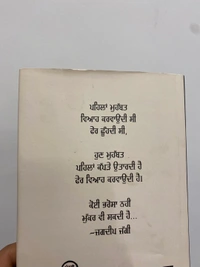 ਪਹਿਲਾਂ ਮੁਹੱਬਤ
ਵਿਆਹ ਕਰਵਾਉਂਦੀ ਸੀ
ਫੇਰ ਛੂੰਹਦੀ ਸੀ,
ਹੁਣ ਮੁਹੱਬਤ
ਪਹਿਲਾਂ ਕੱਪੜੇ ਉਤਾਰਦੀ ਹੈ
ਫੇਰ ਵਿਆਹ ਕਰਵਾਉਂਦੀ ਹੈ।
ਕੋਈ ਭਰੋਸਾ ਨਹੀਂ
ਮੁੱਕਰ ਵੀ ਸਕਦੀ ਹੈ...
–ਜਗਦੀਪ ਜੱਗੀ